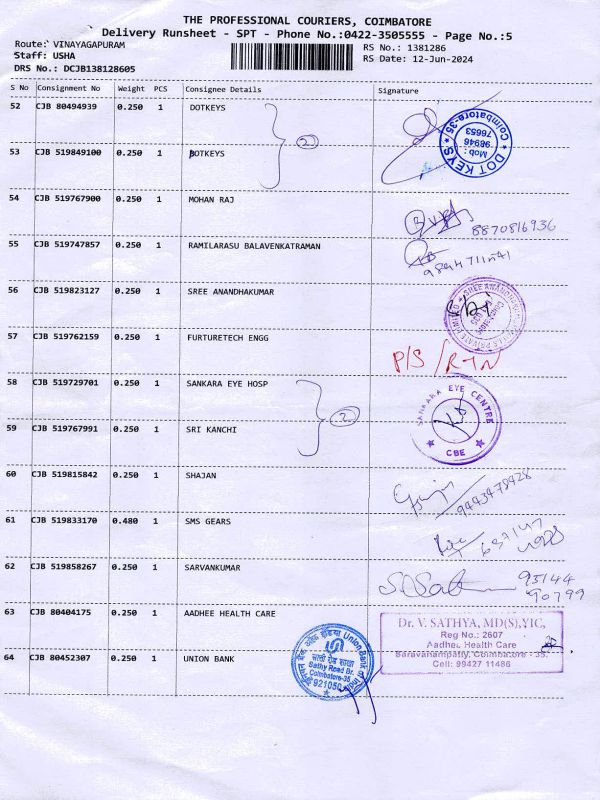 THE PROFESSIONAL COURIERS, COIMBATORE
Delivery Runsheet - SPT - Phone No.:0422-3505555 - Page No.:5
Route: VINAYAGAPURAM
RS No.: 1381286
Staff: USHA
RS Date: 12-Jun-2024
DRS No.: DCJB138128605
S No Consignment No Weight PCS Consignee Details Signature
52 CJB 80494939 0.250 1 DOTKEYS
2
DOT KEYS
Mob: 98946 76653
Coimbatore-35
53 CJB 519849100 0.250 1 DOTKEYS
54 CJB 519767900 0.250 1 MOHAN RAJ
8870816936
55 CJB 519747857 0.250 1 RAMILARASU BALAVENKATRAMAN
56 CJB 519823127 0.250 1 SREE ANANDHAKUMAR
57 CJB 519762159 0.250 1 FURTURETECH ENGG
P/S /RTN
58 CJB 519729701 0.250 1 SANKARA EYE HOSP
2
SANKARA EYE CENTRE
CBE
59 CJB 519767991 0.250 1 SRI KANCHI
60 CJB 519815842 0.250 1 SHAJAN
9443478428
61 CJB 519833170 0.480 1 SMS GEARS
62 CJB 519858267 0.250 1 SARVANKUMAR
93144
90799
63 CJB 80404175 0.250 1 AADHEE HEALTH CARE
Dr. V. SATHYA, MD(S),YIC,
Reg No.: 2607
Aadhee Health Care
Saravanampatty, Coimbatore - 35.
Cell: 99427 11486
64 CJB 80452307 0.250 1 UNION BANK
यूनियन बैंक ऑफ इंडिया Union Bank of India
Sathy Road Br.
Coimbatore-35
921050